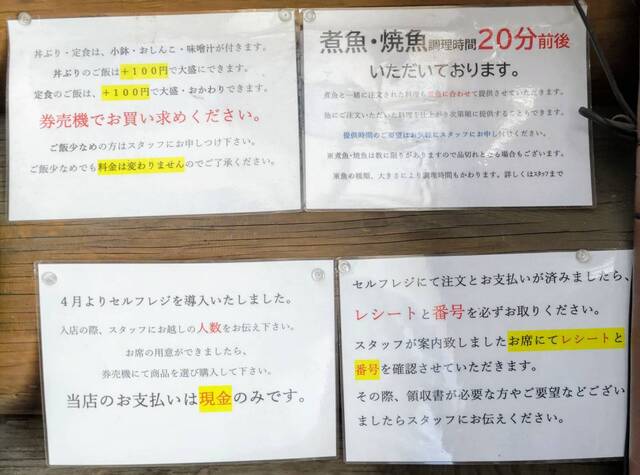 丼ぶり・定食は、小鉢・おしんこ・味噌汁が付きます。
丼ぶりのご飯は＋１００円で大盛にできます。
定食のご飯は、＋１００円で大盛・おかわりできます。
券売機でお買い求めください。
ご飯少なめの方はスタッフにお申しつけ下さい。
ご飯少なめでも料金は変わりませんのでご了承ください。
煮魚・焼魚調理時間20分前後
いただいております。
煮魚と一緒に注文された料理も煮魚に合わせて提供させていただきます。
他にご注文いただいた料理を仕上がり次第順に提供することもできます。
提供時間のご要望はお気軽にスタッフにお申し付けください。
※煮魚・焼魚は数に限りがありますので品切れとなる場合もございます。
※魚の種類、大きさにより調理時間もかわります。詳しくはｽﾀｯﾌまで
４月よりセルフレジを導入いたしました。
入店の際、スタッフにお越しの人数をお伝え下さい。
お席の用意ができましたら、
券売機にて商品を選び購入して下さい。
当店のお支払いは現金のみです。
セルフレジにて注文とお支払いが済みましたら、
レシートと番号を必ずお取りください。
スタッフが案内致しましたお席にてレシートと
番号を確認させていただきます。
その際、領収書が必要な方やご要望などござい
ましたらスタッフにお伝えください。